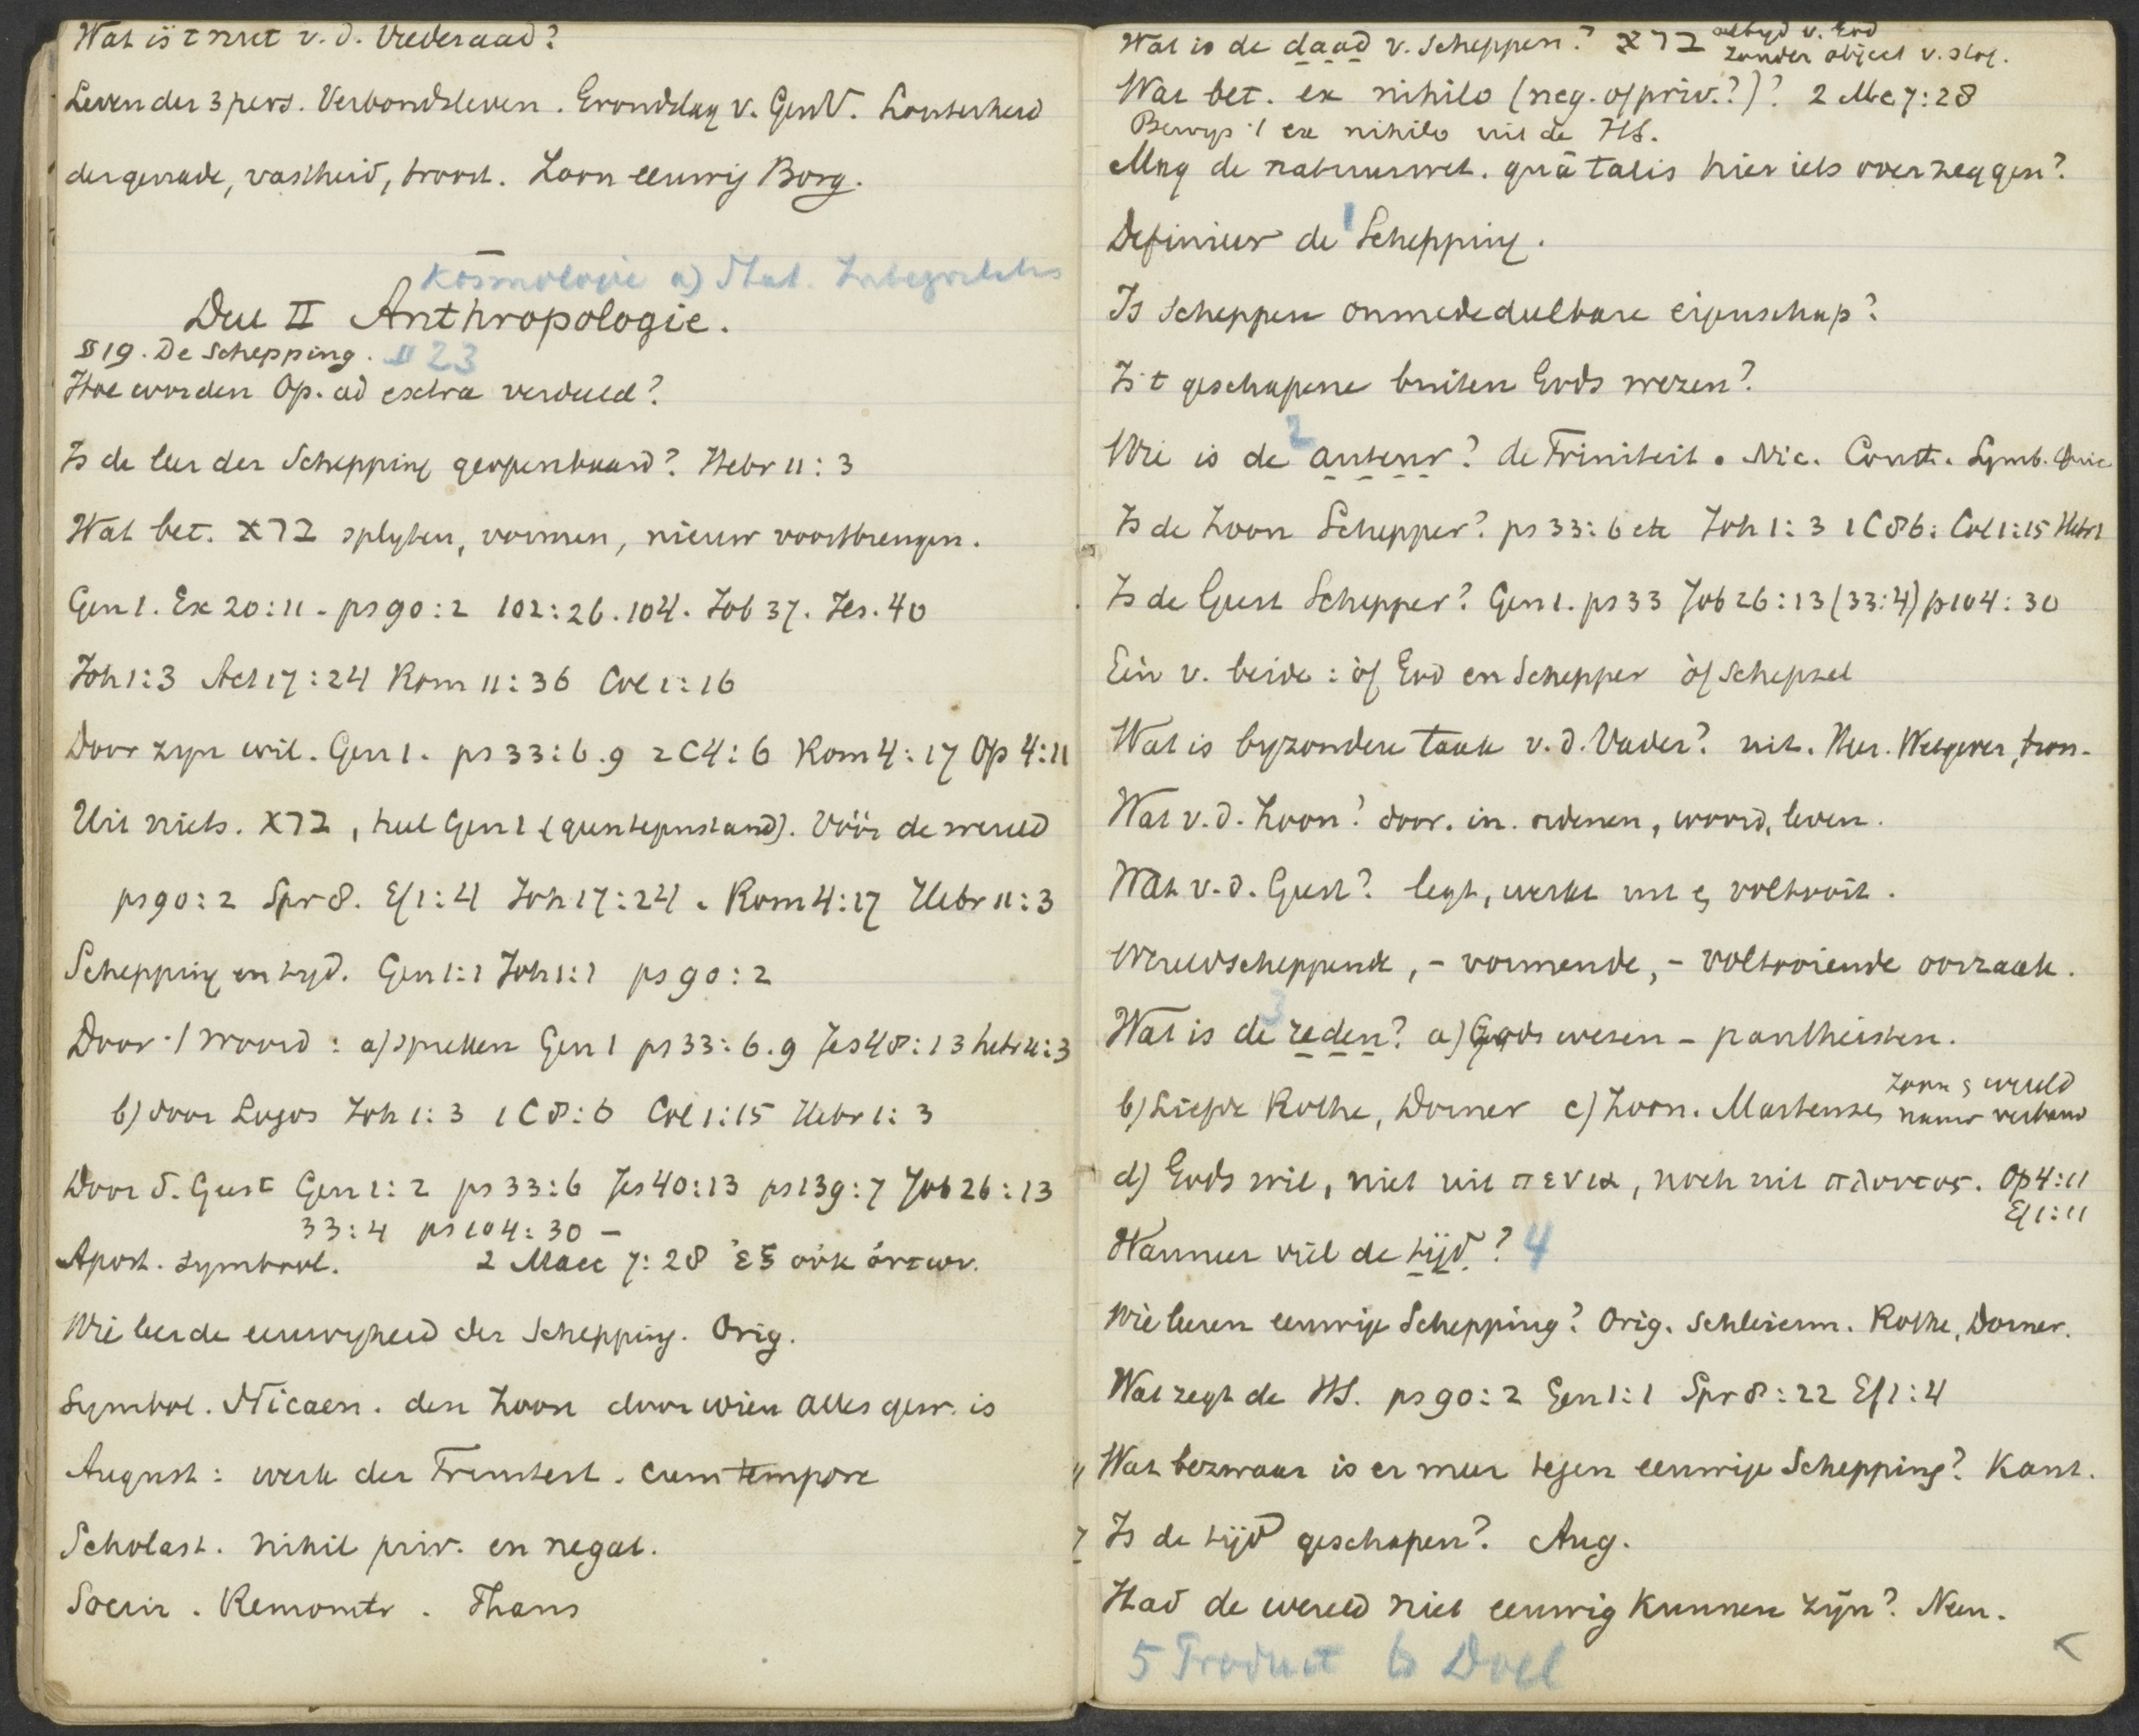 Wat is 't nut v. d. Vrederaad?
Leven der 3 pers. Verbondsleven. Grondslag v. GenV. Lauterheid
der genade, vastheid, troost. Zoon eeuwig Borg.
Kosmologie a) Stat. Integritatis
Deel II Anthropologie.
§ 19. De Schepping. § 23
Hoe worden Op. ad extra verdeeld?
Is de leer der Schepping geopenbaard? Hebr 11:3
Wat bet. ברא splyten, vormen, nieuw voortbrengen.
Gen 1. Ex 20:11 - ps 90:2 102:26. 104. Job 37. Jes. 40
Joh 1:3 Act 17:24 Rom 11:36 Col 1:16
Door zyn wil. Gen 1. ps 33:6.9 2 C 4:6 Rom 4:17 Op 4:11
Uit niets. ברא, heel Gen 1 (geen tegenstand). Vóór de wereld
ps 90:2 Spr 8. Ef 1:4 Joh 17:24. Rom 4:17 Hebr 11:3
Schepping en tyd. Gen 1:1 Joh 1:1 ps 90:2
Door 't Woord: a) spreken Gen 1 ps 33:6.9 Jes 48:13 hebr 11:3
b) door Logos Joh 1:3 1 C 8:6 Col 1:15 Hebr 1:3
Door d. Geest Gen 1:2 ps 33:6 Jes 40:13 ps 139:7 Job 26:13
33:4 ps 104:30 -
Apost. symbool. 2 Macc 7:28 ἐξ οὐκ ὄντων.
Wie leerde eeuwigheid der Schepping. Orig.
Symbol. Nicaen. den Zoon door wien alles gew. is
August: werk der Triniteit. cum tempore
Scholast. nihil priv. en negat.
Socin. Remonstr. Thans
Wat is de daad v. Scheppen? ברא altyd v. God
zonder object v. stof.
Wat bet. ex nihilo (neg. of priv.?)? 2 Mc 7:28
Bewys 't ex nihilo uit de HS.
Mag de natuurwet. quā talis hier iets over zeggen?
Definieer de 1 Schepping.
Is Scheppen onmededeelbare eigenschap?
Is 't geschapene buiten Gods wezen?
Wie is de 2 auteur? de Triniteit. Nic. Const. Symb.
Is de Zoon Schepper? ps 33:6 etc Joh 1:3 1 C 8 6: Col 1:15 Hebr 1
Is de Geest Schepper? Gen 1. ps 33 Job 26:13 (33:4) ps 104:30
Eén v. beide: òf God en Schepper òf schepsel
Wat is byzondere taak v. d. Vader? uit. Wetgever, bron.
Wat v. d. Zoon? door. in. ordenen, woord, leven.
Wat v. d. Geest? legt, werkt uit & voltooit.
Wereldscheppende, - vormende, - voltooiende oorzaak.
Wat is de 3 reden? a) Gods wezen - pantheisten.
b) Liefde Rothe, Dorner c) Zoon. Martensen Zoon & wereld
nauw verband
d) Gods wil, niet uit πενια, noch uit πλουτος. Op 4:11
Ef 1:11
Wanneer viel de tijd? 4
Wie leeren eeuwige Schepping? Orig. Schleierm. Rothe, Dorner.
Wat zegt de HS. ps 90:2 Gen 1:1 Spr 8:22 Ef 1:4
Wat bezwaar is er meer tegen eeuwige Schepping? Kant.
Is de tijd geschapen? Aug.
Had de wereld niet eeuwig kunnen zijn? Neen.
5 Product 6 Doel